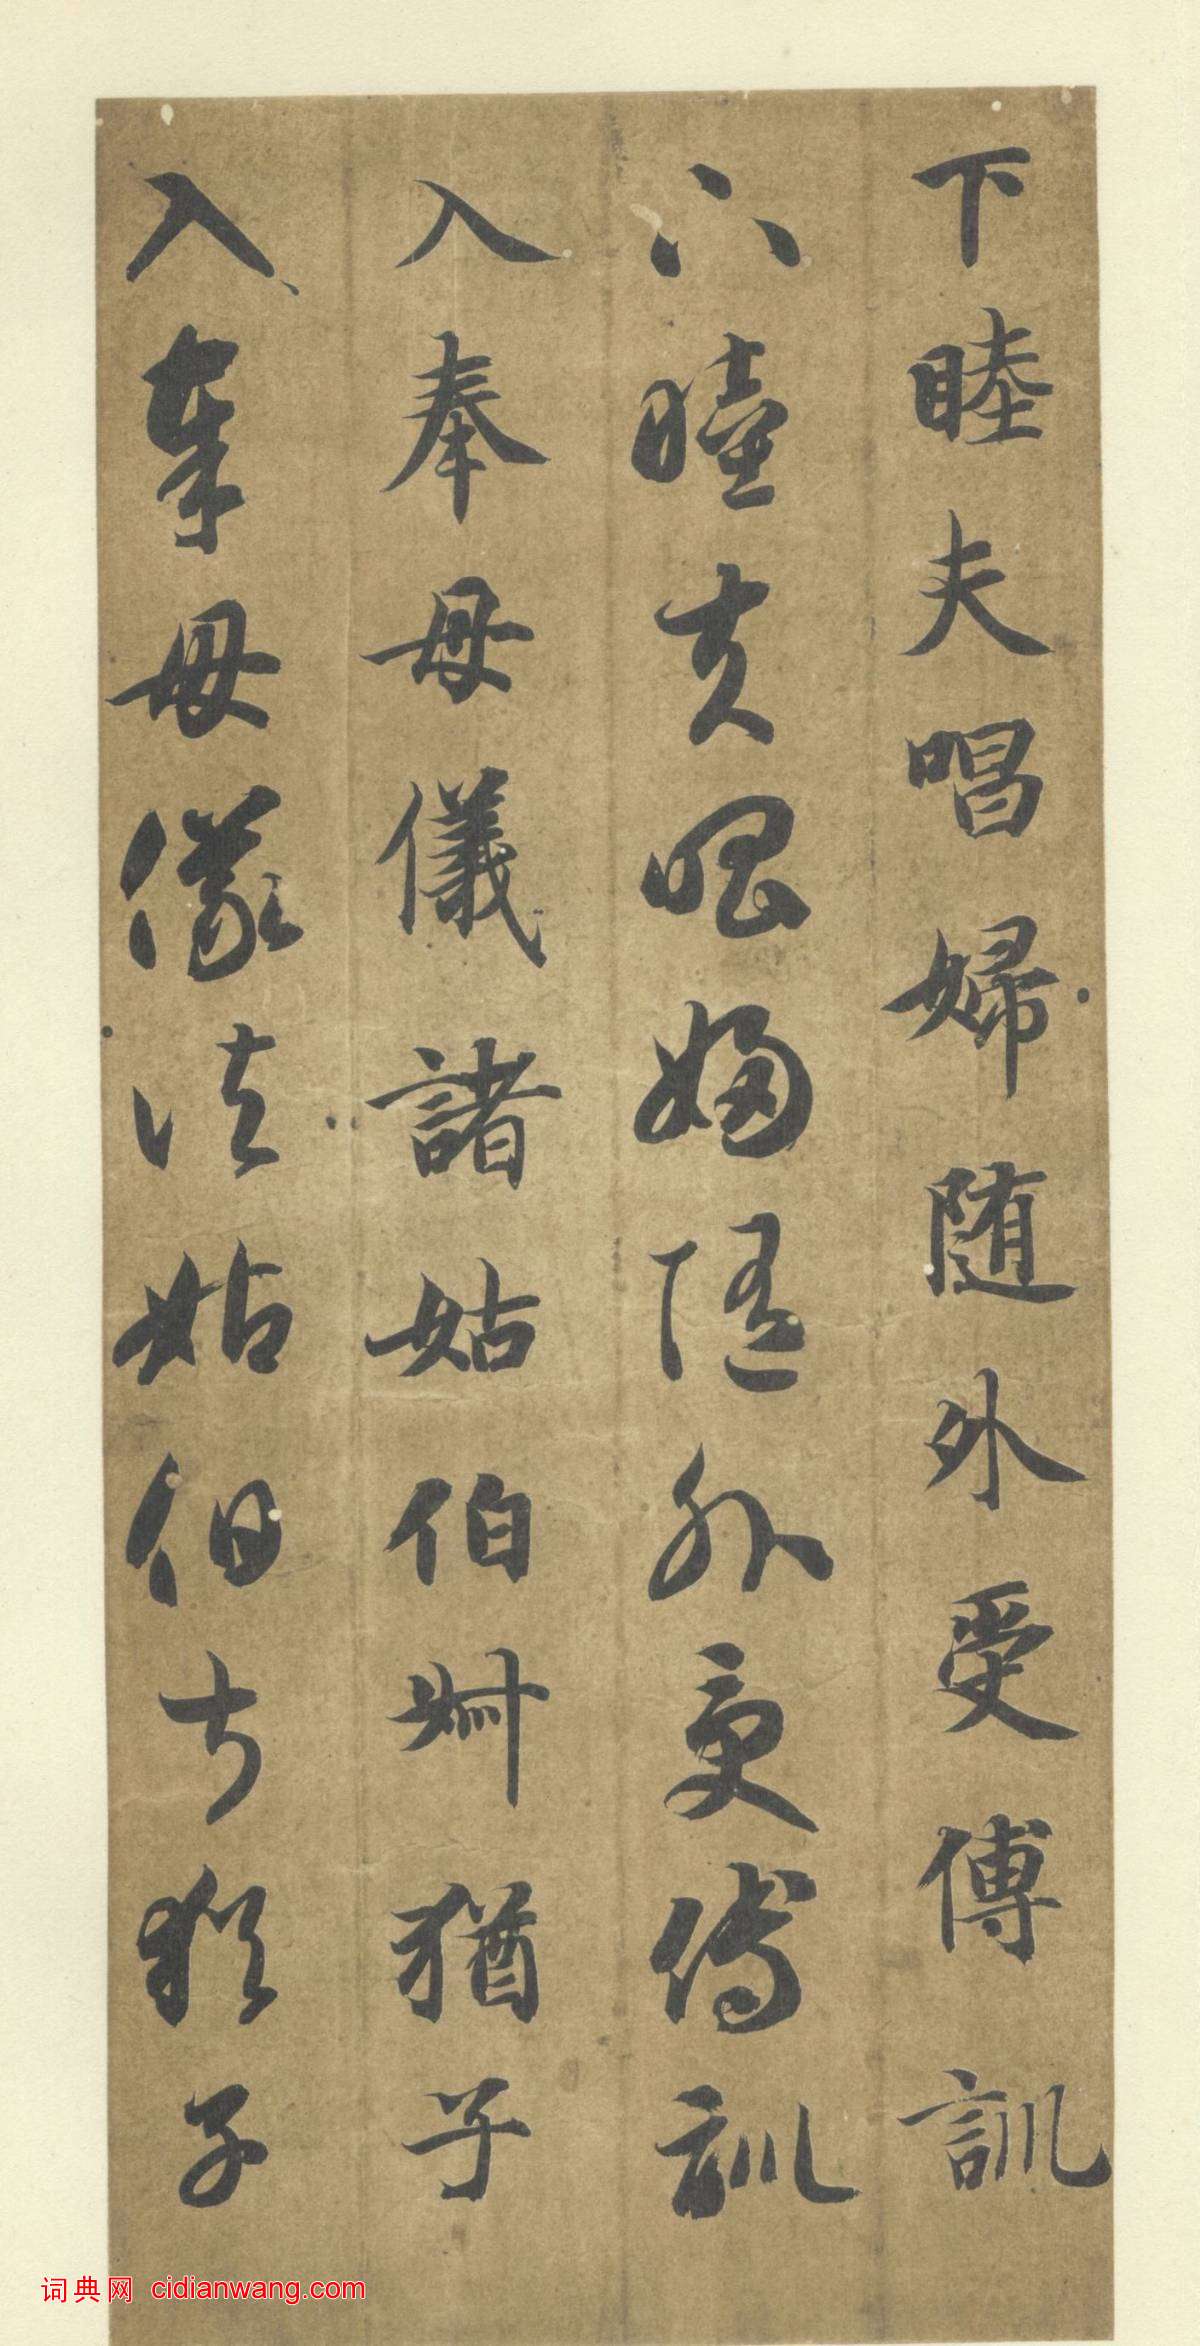 下睦夫唱婦随外受傅訓
下睦夫唱婦随外受傅訓
入奉母儀諸姑伯叔猶子
入奉母儀諸姑伯叔猶子
词典网 cidianwang.com